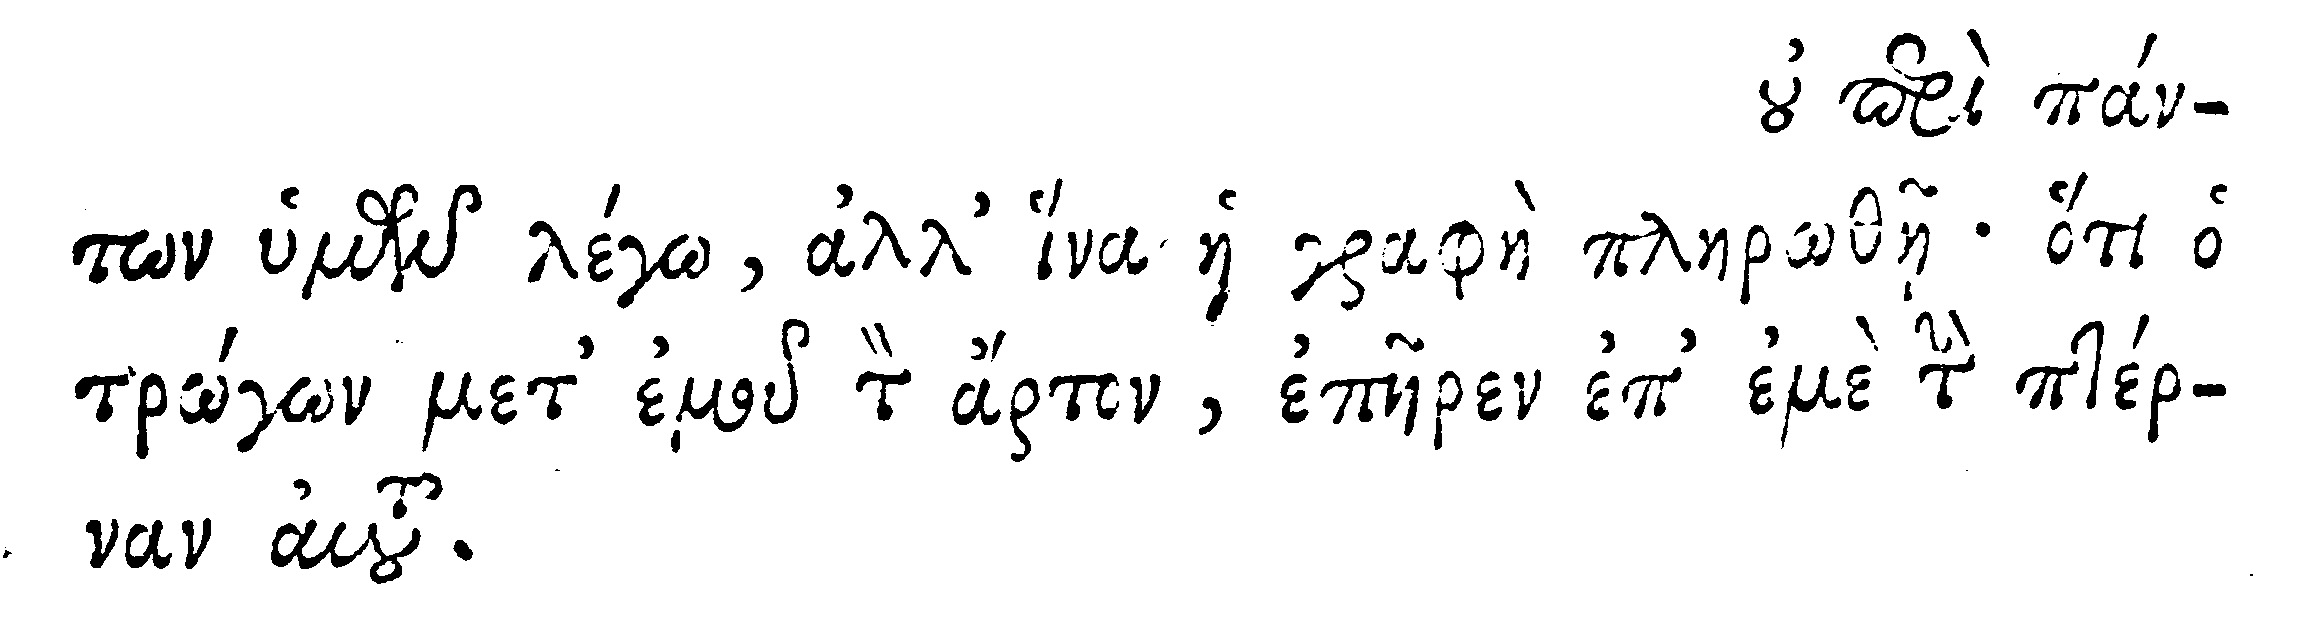 οὐ περὶ πάν-
των ὑμῶν λέγω, ἀλλ’ ἵνα ἡ γραφὴ πληρωθῇ· ὅτι ὁ
τρώγων μετ’ ἐμοῦ τὸν ἄρτον, ἐπῆρεν ἐπ’ ἐμὲ τὴν πτέρ-
ναν αὐτοῦ.